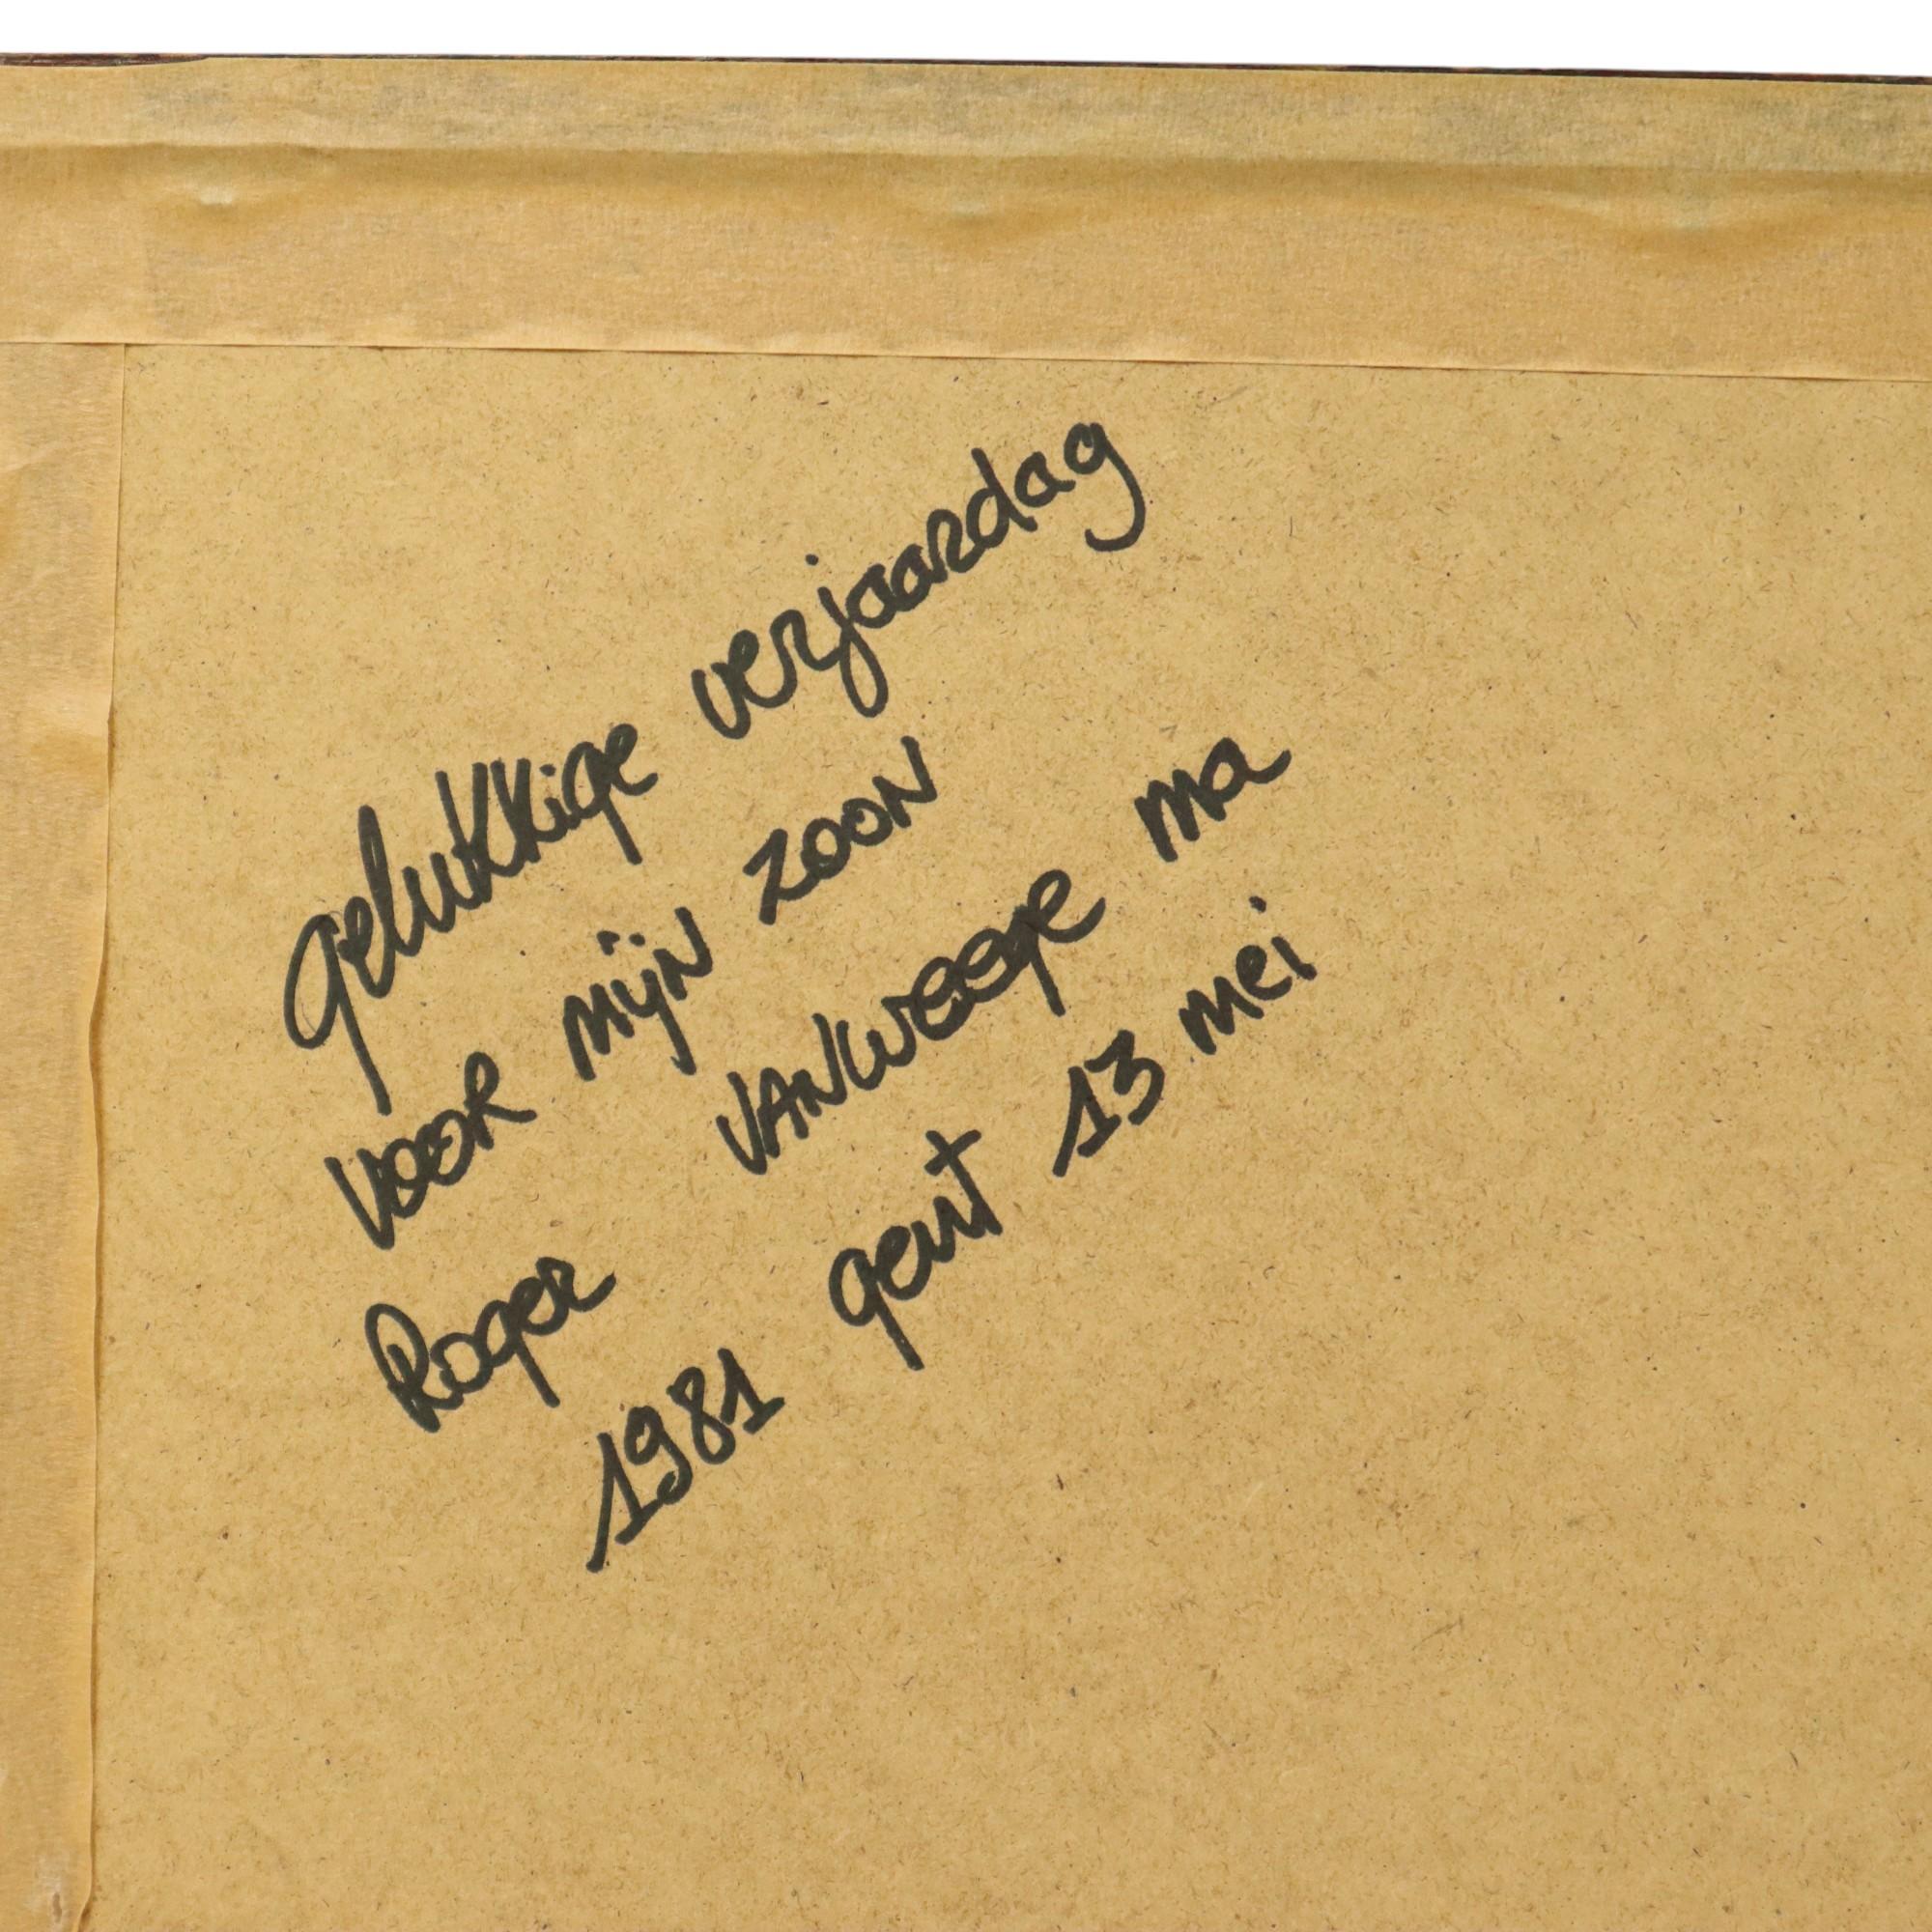 gelukkige verjaardag
voor mijn zoon
Roger vanweege ma
1981 gent 13 mei